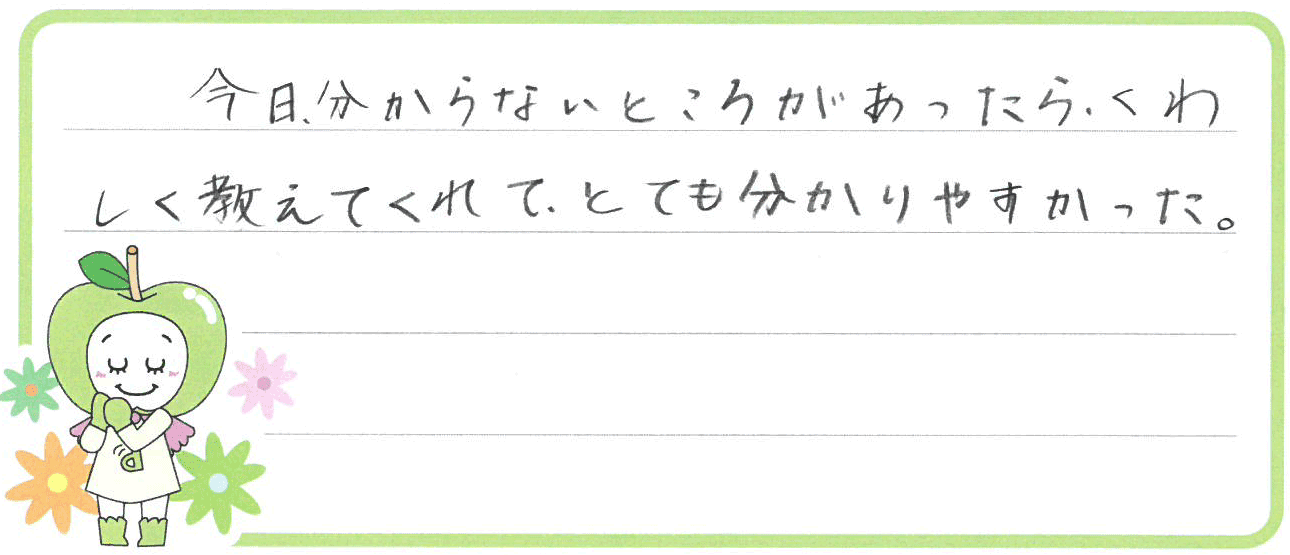 今日、分からないところがあったら、くわ
しく教えてくれて、とても分かりやすかった。